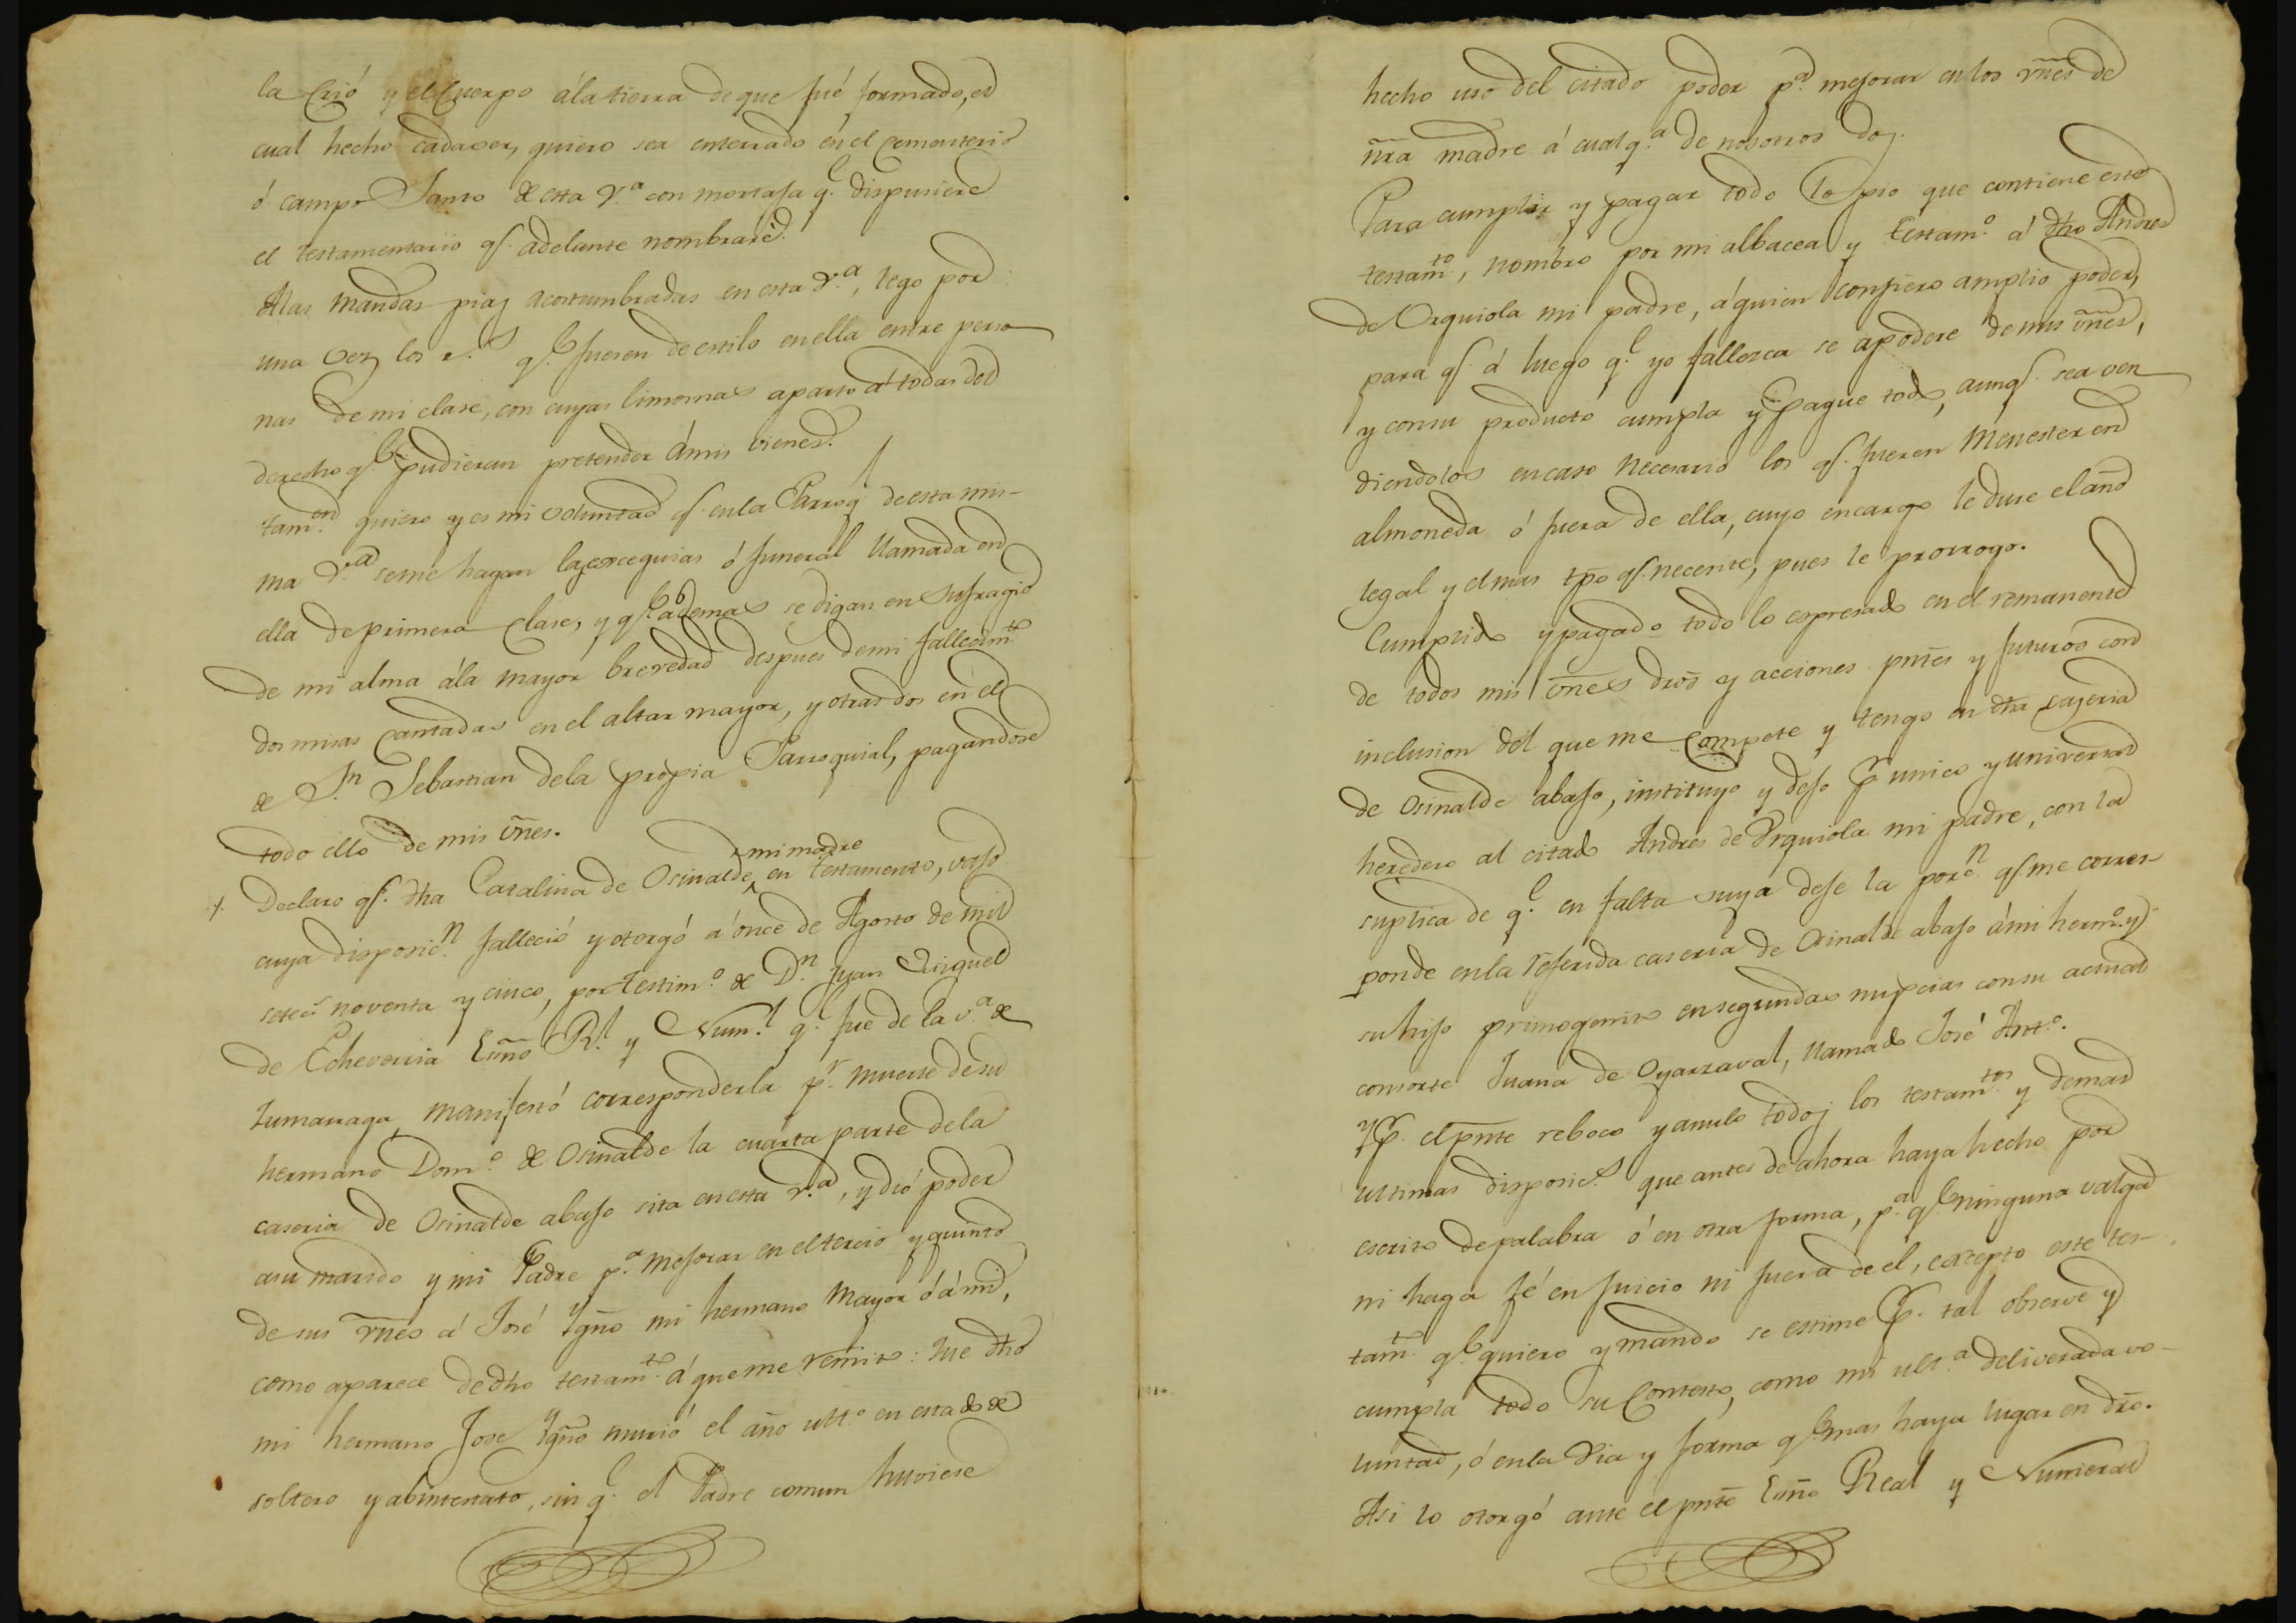 la Crió y el Cuerpo á la tierra de que fué formado, el
cual hecho cadaver, quiero sea enterrado en el cementerio
ó campo Santo de esta V.ª con mortaja q.e dispusiere
el testamentario q.e adelante nombraré.
A las mandas pias acostumbradas en esta V.ª, lego por
una vez los r.s q.e fueren de estilo en ella entre perso
nas de mi clase, con cuyas limosnas aparto á todas del
derecho q.e pudieran pretender á mis vienes.
Tam.en quiero y es mi voluntad q.e en la Parroq.l de esta mis-
ma V.ª se me hagan las excequias ó funeral llamada en
ella de primera clase, y q.e ademas se digan en sufragio
de mi alma á la mayor brevedad despues de mi fallecim.to
dos misas cantadas en el altar mayor, y otras dos en el
de S.n Sebastian de la propia Parroquial, pagandose
todo ello de mis vñes.
Declaro q.e dha Catalina de Osinalde mi madre en testamento, vajo
cuya disposic.n falleció y otorgó á once de Agosto de mil
setec.s noventa y cinco, por testim.o de D.n Juan Miguel
de Echeverria Esño R.l y Num.l q.e fue de la v.ª de
Zumarraga, manifestó corresponderla p.r muerte de su
hermano Dom.o de Osinalde la cuarta parte de la
caseria de Osinalde abajo sita en esta v.ª, y dió poder
a su marido y mi Padre p.ª mejorar en el tercio y quinto
de sus vñes á José Ygñò mi hermano mayor ó á mi,
como aparece de dho testam.to á que me remito: que dho
mi hermano Jose Ygñò murió el año ult.o en estado de
soltero y abintestato, sin q.e el Padre comun huviese
hecho uso del citado poder p.ª mejorar en los vñes de
ñra madre á cualq.ª de nosotros dos.
Para cumplir y pagar todo lo pio que contiene este
testam.to, nombro por mi albacea y testam.o á dho Andres
de Orquiola mi padre, á quien confiero amplio poder,
para q.e á luego q.e yo fallezca se apodere de mis vñes,
y con su producto cumpla y pague todo, aunq.e sea ven
diendolos en caso necesario los q.e fueren menester en
almoneda ó fuera de ella, cuyo encargo le dure el año
legal y el mas tpo q.e necesite, pues le prorrogo.
Cumplido y pagado todo lo espresado en el remanente
de todos mis vñes dros y acciones pñtes y futuros con
inclusion del que me compete y tengo en dha caseria
de Osinalde abajo, instituyo y dejo p.r unico y universal
heredero al citado Andres de Orquiola mi padre, con la
suplica de q.e en falta suya deje la porc.n q.e me corres-
ponde en la referida caseria de Osinalde abajo á mi herm.o y
su hijo primogenito en segundas nupcias con su actual
consorte Juana de Oyarzaval, llamado José Ant.o.
Y p.r el pñte reboco y anulo todos los testam.tos y demas
ultimas disposic.s que antes de ahora haya hecho por
escrito de palabra ó en otra forma, p.ª q.e ninguna valga
ni haga fé en juicio ni fuera de el, excepto este tes-
tam.to q.e quiero y mando se estime p.r tal observe y
cumpla todo su contesto, como mi ult.ª deliverada vo-
luntad, ó en la via y forma q.e mas haya lugar en dro.
Asi lo otorgó ante el pñte Esño Real y Numeral